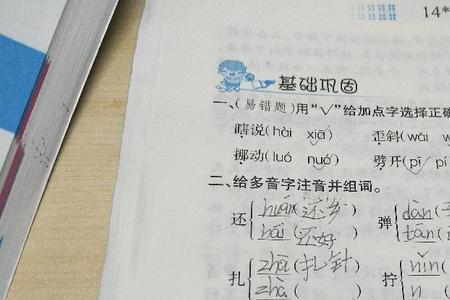 14*
基础巩固
一、(易错题)用“√”给加点字选择正确
瞎说(hài xiā) 歪斜(wāi w
挪动(luó nuó) 劈开(pī/ pí
二、给多音字注音并组词。
还 huán(还乡) 弹 dàn(
hái(还好) tán(
扎 zhā(扎针) 拧 nǐn(
zhā( ) n (